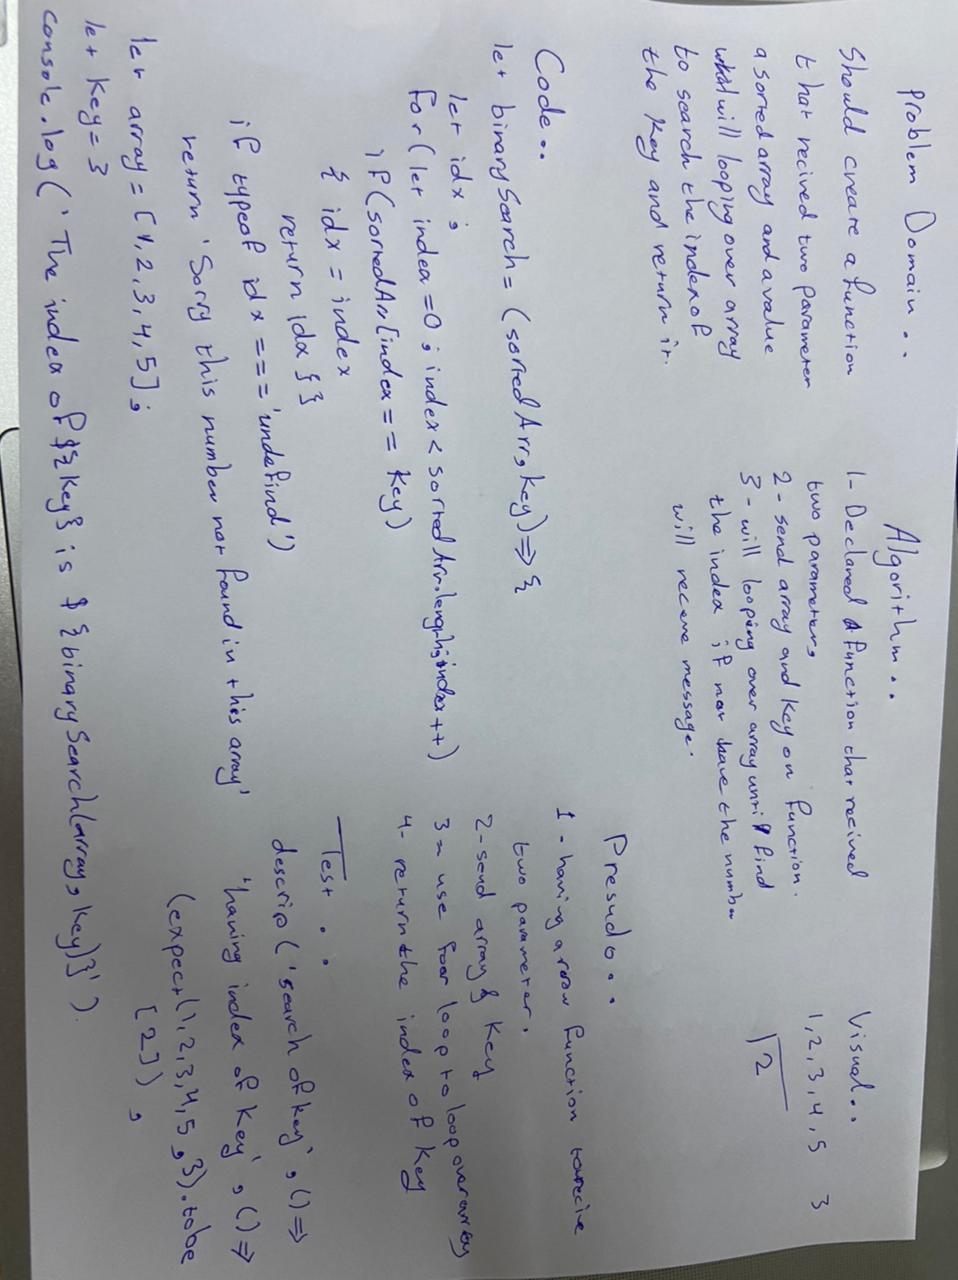 problem Domain..
Should create a function
that recived two parameter
a sorted array and a value
will looping over array
to search the index of
the key and return it.
Algorithm...
1- Declared A function that recived
two parameters
2- send array and key on function.
3- will looping over array until find
the index if not have the number
will receve message.
Visual...
1,2,3,4,5 3
2
Code..
let binarySearch = (sortedArr, key) => {
let idx ;
for (let index =0 ; index < sortedArr.length; index ++)
if (sortedArr[index == key)
{ idx = index
return idx } }
if typeof idx === 'undefind')
return 'Sorry this number not found in this array'
let array = [1,2,3,4,5];
let key = 3
console.log('The index of ${key} is ${binarySearch(array, key)}').
Presudo...
1- having arrow function to recive
two parameter.
2- send array & key
3- use foor loop to loop over array
4- return the index of key
Test...
descrip('search of key', () =>
'having index of key', () =>
(expect(1,2,3,4,5,3).tobe
[2]),